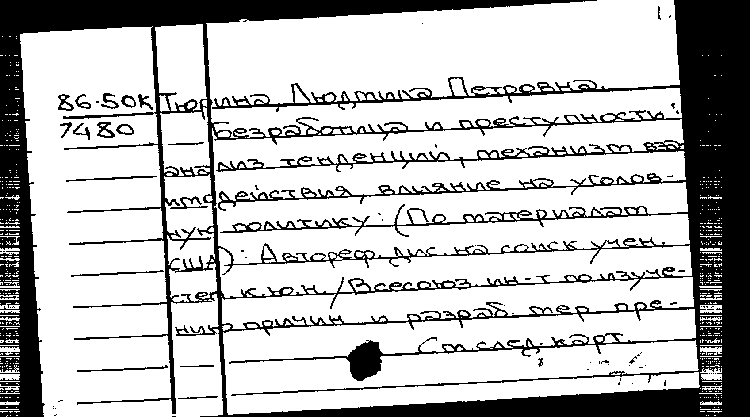 1.
86-50К Тюрина, Людмила Петровна.
7480 Безработица и преступность:
анализ тенденций, механизм вза-
имодействия, влияние на уголов-
ную политику: (По материалам
США): Автореф. дис. на соиск учен.
степ. к.ю.н. / Всесоюз. ин-т по изуче-
нию причин и разраб. мер. пре-
См. след. карт.